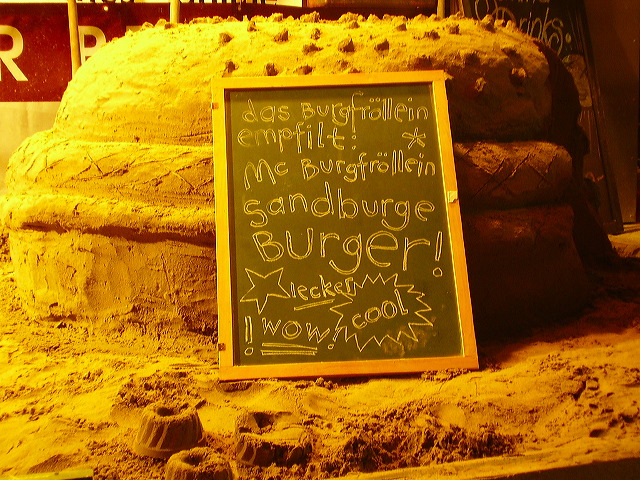 das Burgfröllein
empfilt:
Mc Burgfröllein
sandburge
Burger!
lecker!
cool
! wow!
Drinks
R